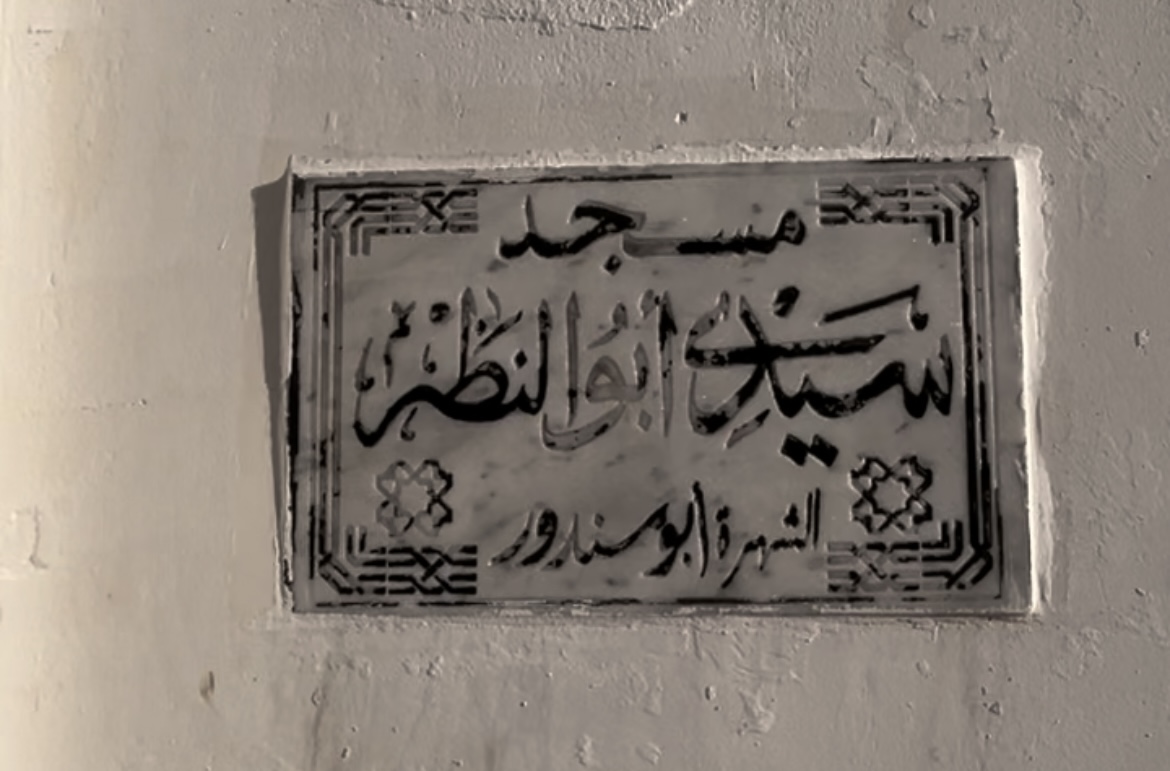 مسجد
سيدي أبو النظر
الشهرة أبو سندور